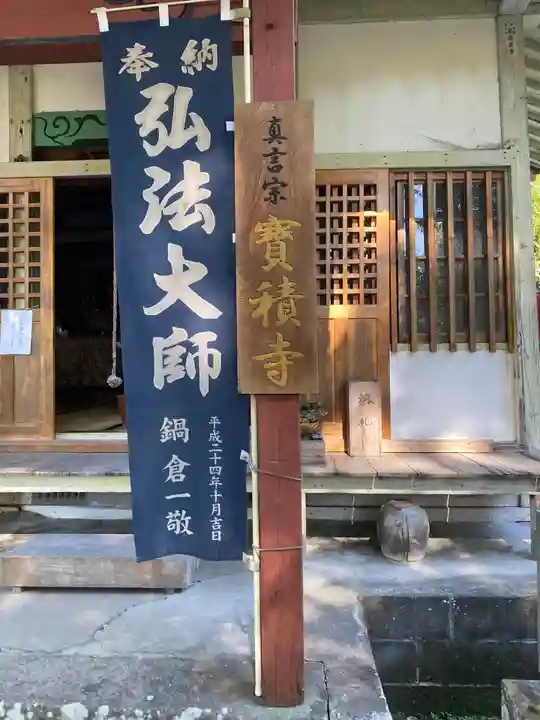 奉納
弘法大師
平成二十四年十月吉日
鍋倉一敬
真言宗
寶積寺
納札